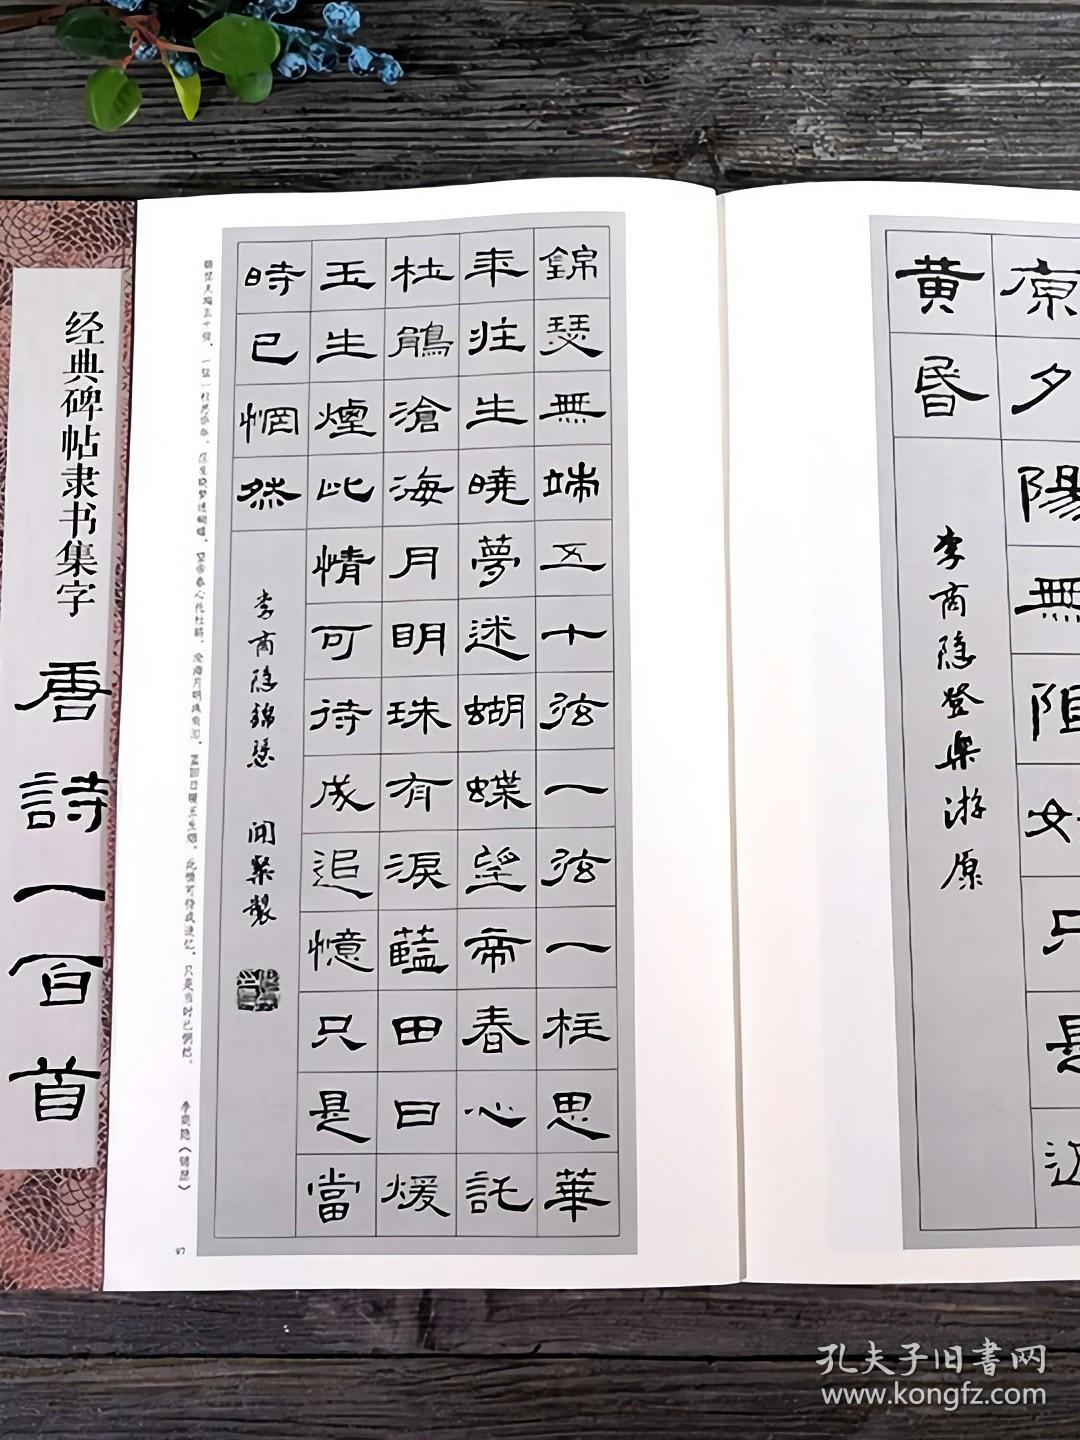 经典碑帖隶书集字 唐詩一百首
錦瑟無端五十弦一弦一柱思華
年莊生曉夢迷蝴蝶望帝春心託
杜鵑滄海月明珠有淚藍田日煖
玉生煙此情可待成追憶只是當
時已惘然
李商隐錦瑟
锦瑟无端五十弦，一弦一柱思华年。庄生晓梦迷蝴蝶，望帝春心托杜鹃。沧海月明珠有泪，蓝田日暖玉生烟。此情可待成追忆，只是当时已惘然。 李商隐《锦瑟》
原夕陽無限好只是近
黄昏
李商隐登樂游原
孔夫子旧書网
www.kongfz.com